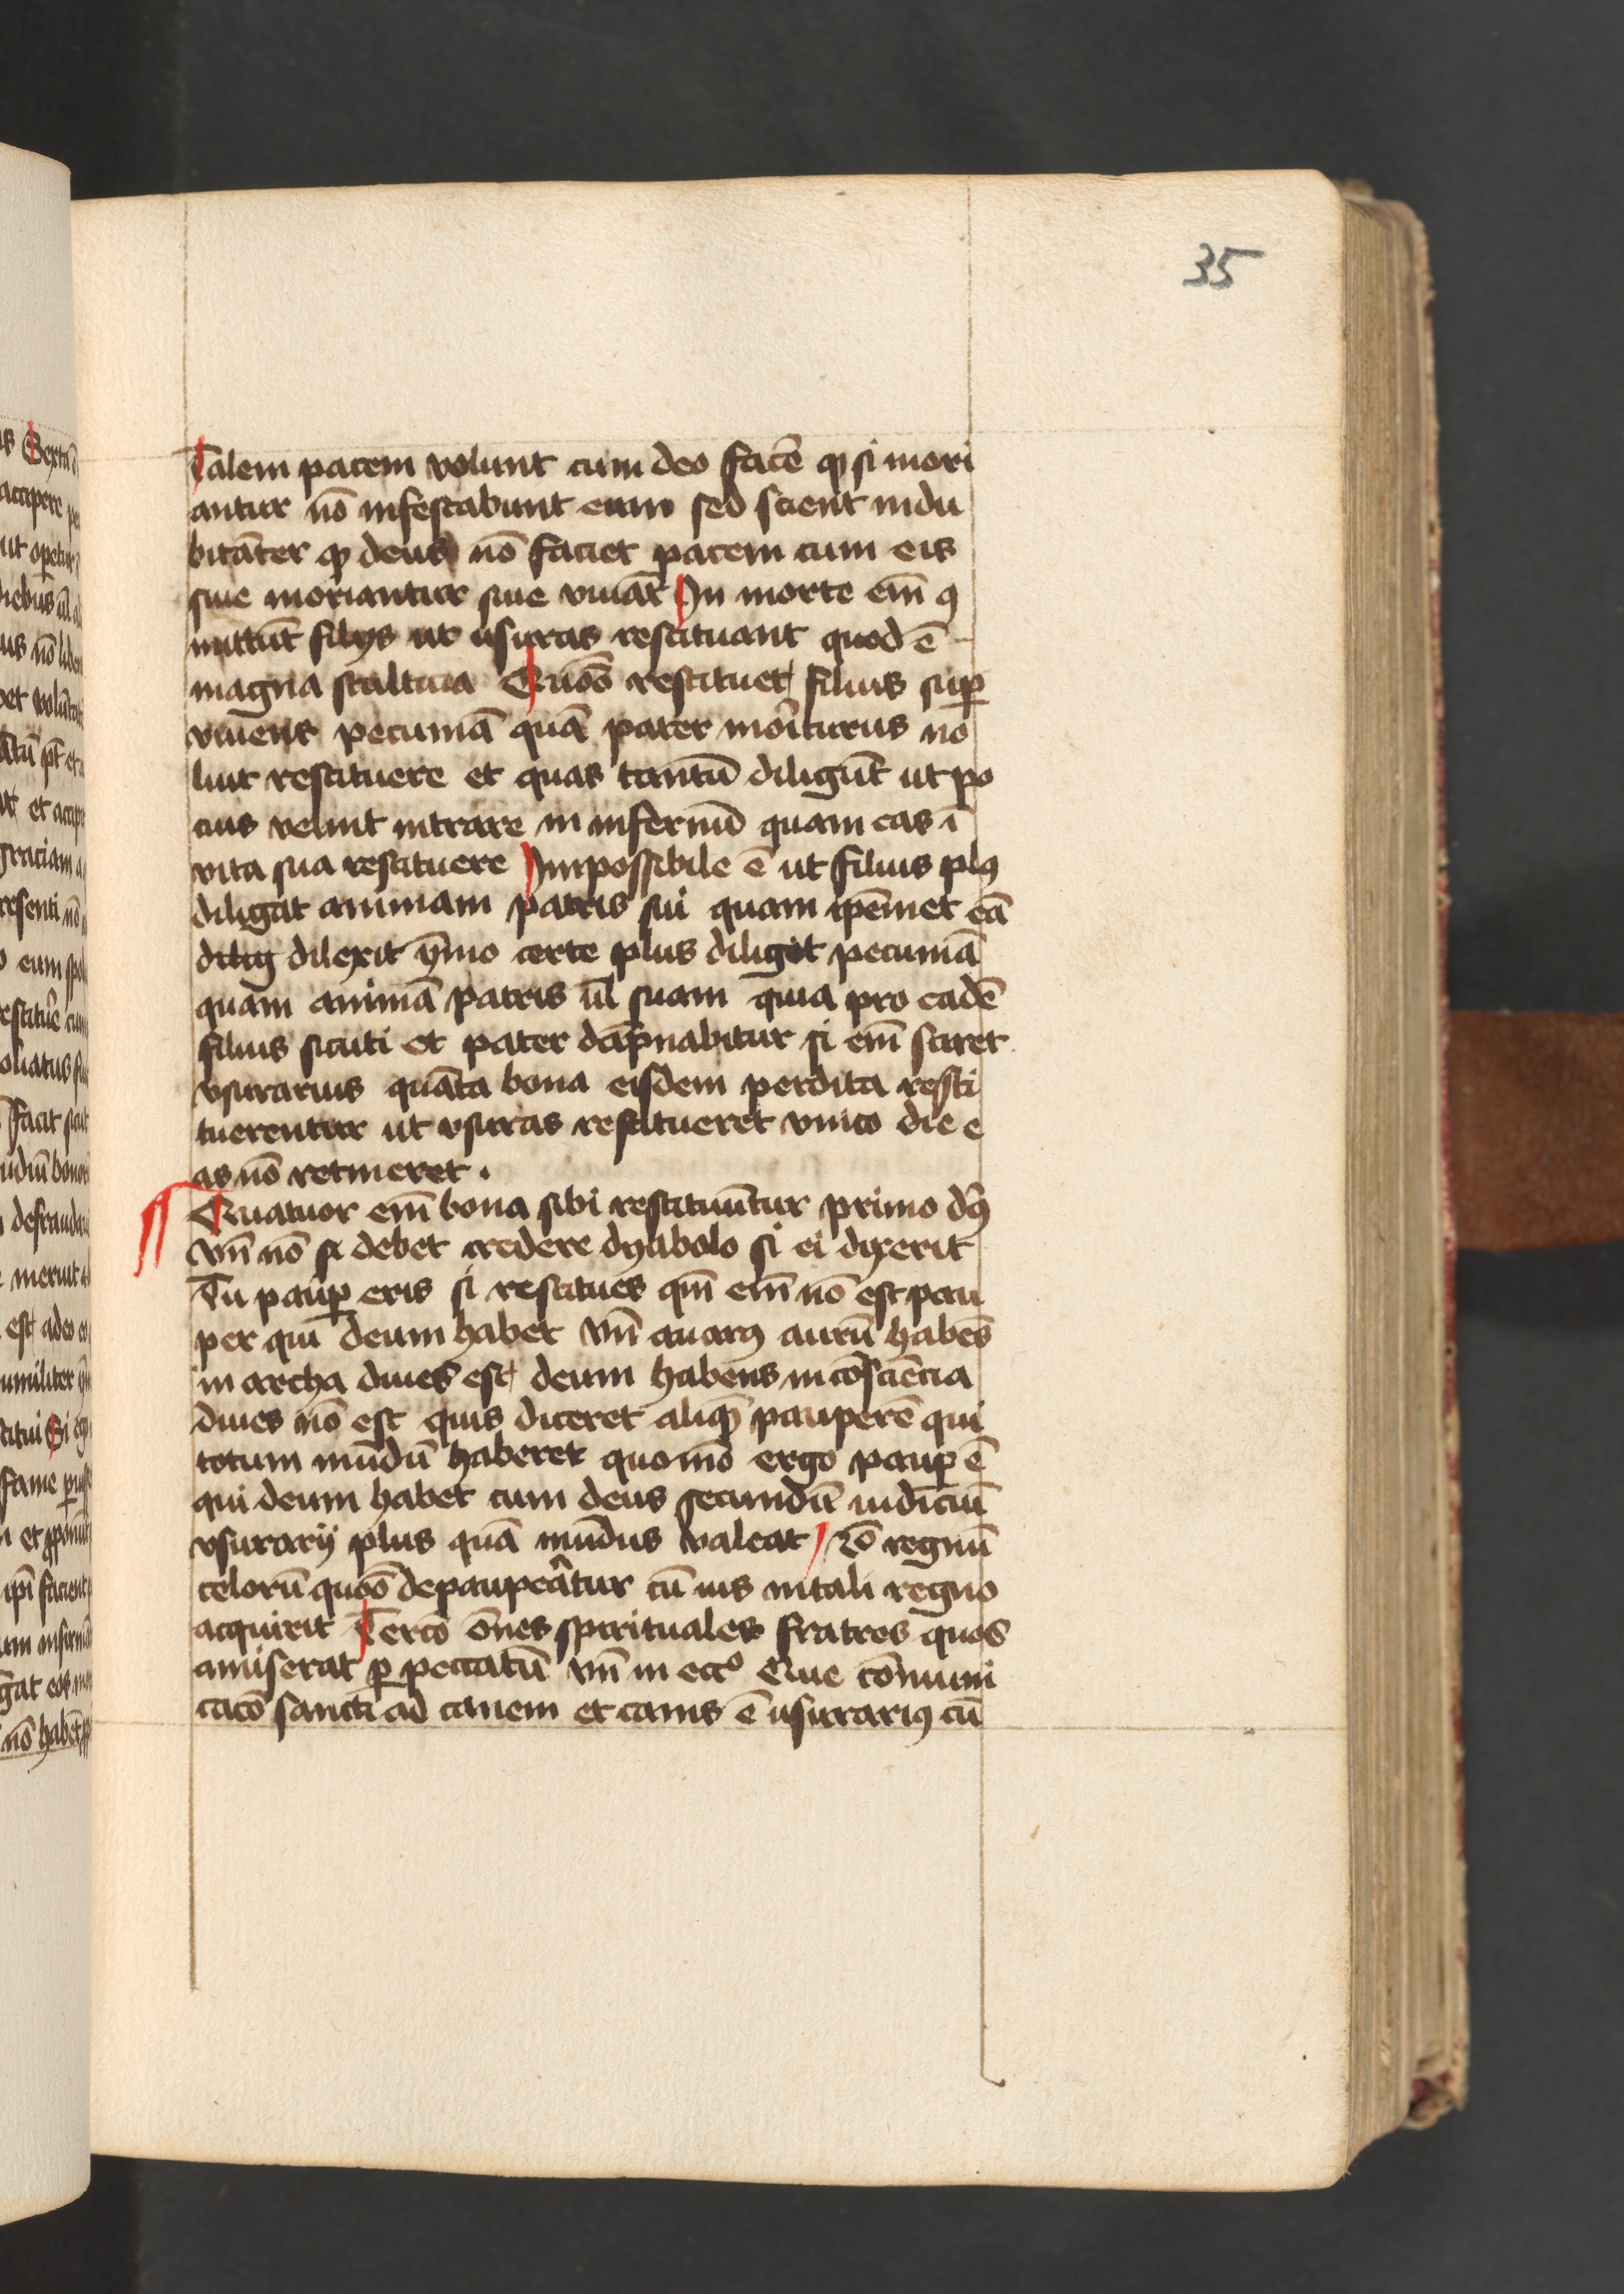 35
Talem pacem volunt cum deo facē ꝙ si mori
antur nō infestabunt eum sed scient indu
bitāter ꝙ deus nō faciet pacem cum eis
siue moriantur siue viuāt In morte em̄ ꝯ
mittūt filijs ut usuras restituant quod ē
magna stulticia Quōō restituet filius suꝑ
viuens pecuniā quā pater moriturus no
luit restituere et quas tantū diligūt ut po
cius velint intrare in infernū quam eas ī
vita sua restituere Impossibile ē ut filius plꝰ
diligat animam patris sui quam ip̄emet eā
dilig dilexit ȳmo certe plus diligit pecuniā
quam animā patris ul̄ suam quia pro eadē
filius sicuti et pater dāpnabitur si em̄ sciret
vsurarius quāta bona eisdem perdita resti
tuerentur ut vsuras restitueret vnico die e
as nō retineret .
Quatuor em̄ bona sibi restituūtur primo dꝰ
vn̄ nō se debet credere dyabolo si ei dixerit
Tu pauꝑ eris si restitues qm̄ em̄ nō est pau
per qui deum habet vn̄ auarꝰ aurū habēs
in archa diues est deum habens in cōsciēcia
diues nō est quis diceret aliqꝫ pauperē qui
totum mūdū haberet quomō ergo pauꝑ ē
qui deum habet cum deus secundū iudiciū
vsurarij plus quā mūdus valeat 2o regnū
celorū quōō depaupeātur cū ius in tali regno
acquirit Tercō ōnes spirituales fratres quos
amiserat ꝑ peccatū vn̄ in eccͦ Que cōmuni
cacō sancti ad canem et canis ē usurariꝰ cū